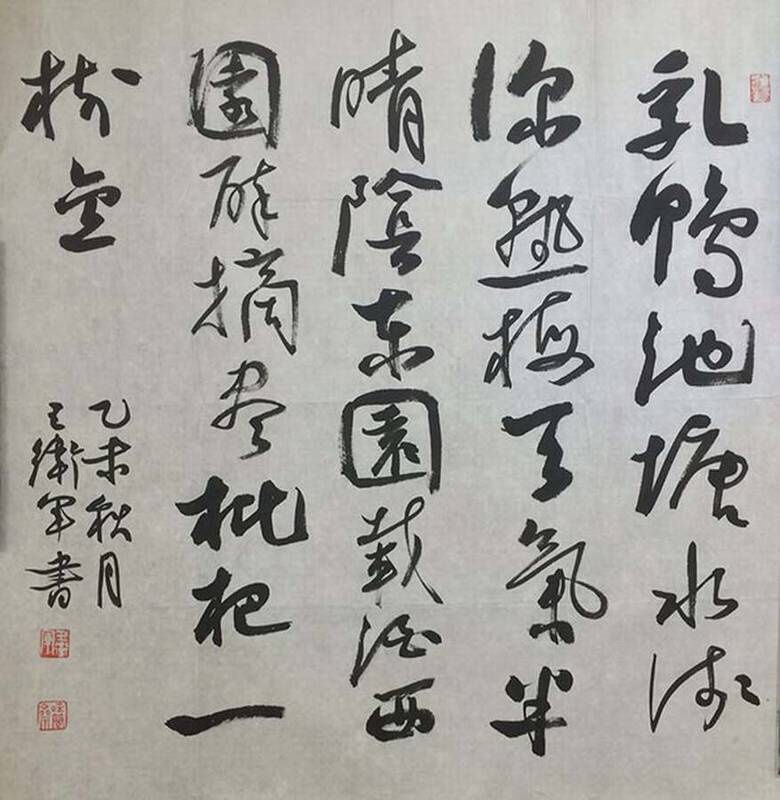 乳鴨池塘水淺
深熟梅天氣半
晴陰東園載酒西
園醉摘盡枇杷一
樹金
乙未秋月
王衛軍書